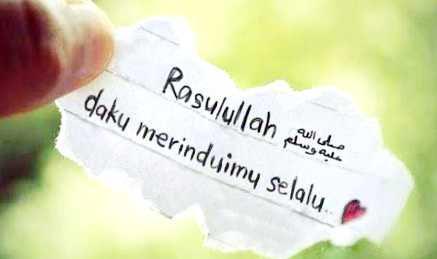 Rasulullah صلى الله عليه وسلم
daku merinduimu selalu..